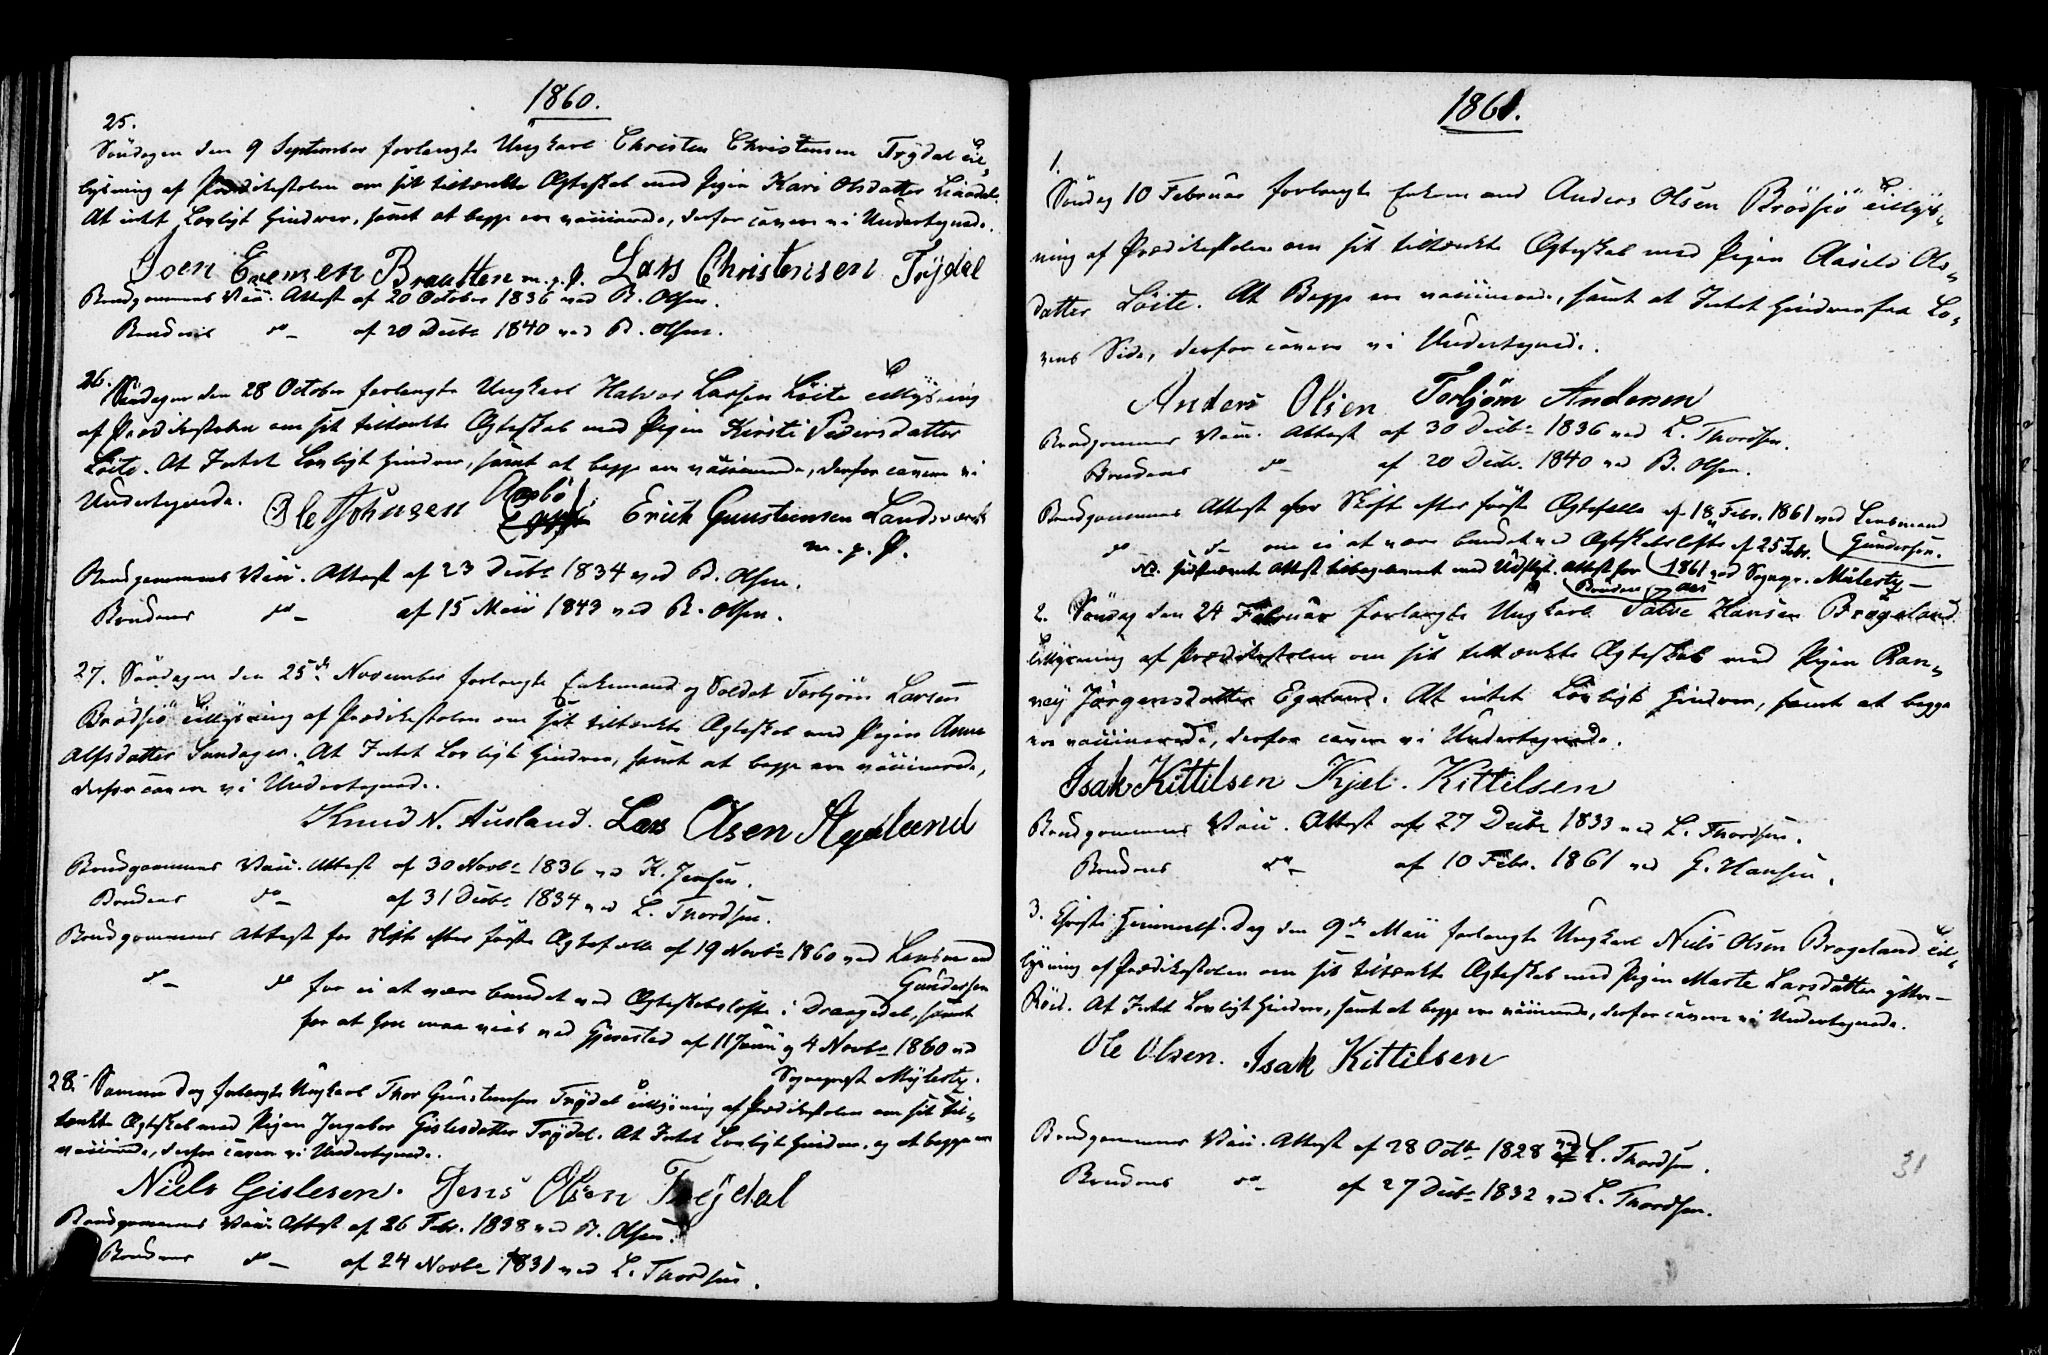 1860.
25.
Søndagen den 9 September forlangte Ungkarl Christen Christensen Trydal Til-
lysning af Prædikestolen om sit tiltænkte Ægteskab med Pigen Kari Olsdatter
At intet Lovligt Hindrer, samt at begge ere vaccinerede, derfor cavere vi Undertegnede.
Joen Evensen Braatten m. p. P. Lars Christensen Trydal
Brudgommens Vacc. Attest af 20 October 1836 ved B. Olsen.
Brudens do af 20 Decbr 1840 ved B. Olsen.
26. Søndagen den 28 October forlangte Ungkarl Halvor Larsen Löite Tillysning
af Prædikestolen om sit tiltænkte Ægteskab med Pigen Kirsti Pedersdatter
Löite. At Intet Lovligt Hindrer, samt at begge ere vaccinerede, derfor cavere vi
Undertegnede. Ole Johnsen Aasbö Erick Gunstensen Landsværk
m. p. P.
Brudgommens Vacc. Attest af 23 Decbr 1834 ved B. Olsen.
Brudens do af 15 Maii 1843 ved B. Olsen.
27. Søndagen den 25de November forlangte Enkemand og Soldat Torbjörn Larsen
Brödsiö Tillysning af Prædikestolen om sit tiltænkte Ægteskab med Pigen Anne
Alfsdatter Sundager. At Intet Lovligt Hindrer, samt at begge ere vaccinerede,
derfor cavere vi Undertegnede.
Knud N. Ausland. Lars Olsen Ageland
Brudgommens Vacc. Attest af 30 Novbr 1836 ved K. Jensen.
Brudens do af 31 Decbr 1834 ved L. Thordsen.
Brudgommens Attest for Skifte efter første Ægtefælle af 19 Novbr 1860 ved Lensmand
Gundersen
do do for ei at være bundet ved Ægteskabsløfte i Drangedal, samt
for at han maa vies ved Gjerestad af 11 Juni og 4 Novbr 1860 ved
Sognepræst Mylertz.
28. Samme Dag forlangte Ungkarl Thor Gunstensen Trydal Tillysning af Prædikestolen om sit til-
tænkte Ægteskab med Pigen Ingebor Gislesdatter Trydal. At Intet Lovligt Hindrer, og at begge ere
vaccinerede, derfor cavere vi Undertegnede.
Niels Gislesen. Jens Olsen Trydal
Brudgommens Vacc. Attest af 26 Febr. 1838 ved B. Olsen.
Brudens do af 24 Novbr 1831 ved L. Thordsen.
1861.
1.
Søndag 10 Februar forlangte Enkemand Anders Olsen Brödsiö Tillys-
ning af Prædikestolen om sit tiltænkte Ægteskab med Pigen Aaselv Ols-
datter Löite. At Begge ere vaccinerede, samt at Intet Hindrer fra Lo-
vens Side, derfor cavere vi Undertegnede.
Anders Olsen Torbjörn Andersen
Brudgommens Vacc. Attest af 30 Decbr 1836 ved L. Thordsen.
Brudens do af 20 Decbr. 1840 ved B. Olsen.
Brudgommens Attest for Skifte efter første Ægtefælle af 18 Febr. 1861 ved Lensmand
Gundersen.
do do om ei at være bundet ved Ægteskabsløfte af 25 Febr.
1861 ved Sognepr. Mylertz
NB. sidstnævnte Attest tilbageleveret med Udflyt. Attest for
Brudens
2. Søndag den 24 Februar forlangte Ungkarl Salve Hansen Brogeland
Tillysning af Prædikestolen om sit tiltænkte Ægteskab med Pigen Ran-
neij Jörgensdatter Egeland. At intet Lovligt Hindrer, samt at begge
ere vaccinerede, derfor cavere vi Undertegnede.
Isak Kittilsen Kjel. Kittelsen
Brudgommens Vacc. Attest af 27 Decbr 1833 ved L. Thordsen.
Brudens do af 10 Febr. 1861 ved G. Hansen.
3. Christi Himmelf. Dag den 9de Maii forlangte Ungkarl Niels Olsen Brogeland Til-
lysning af Prædikestolen om sit tiltænkte Ægteskab med Pigen Marte Larsdatter yttre-
Röed. At Intet Lovligt Hindrer, samt at begge ere vaccinerede, derfor cavere vi Undertegnede.
Ole Olsen. Isak Kittilsen
Brudgommens Vacc. Attest af 28 Octbr 1828 ved L. Thordsen.
Brudens do af 27 Decbr 1832 ved L. Thordsen.
31